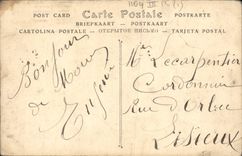 POST CARD Carte Postale POSTKARTE
BRIEFKAART POSTKAART
CARTOLINA POSTALE ОТКРЫТОЕ ПИСЬМО TARJETA POSTAL
Bonjour
de
Mr Lecarpentier
Cordonnier
Rue d'Orbec
Lisieux